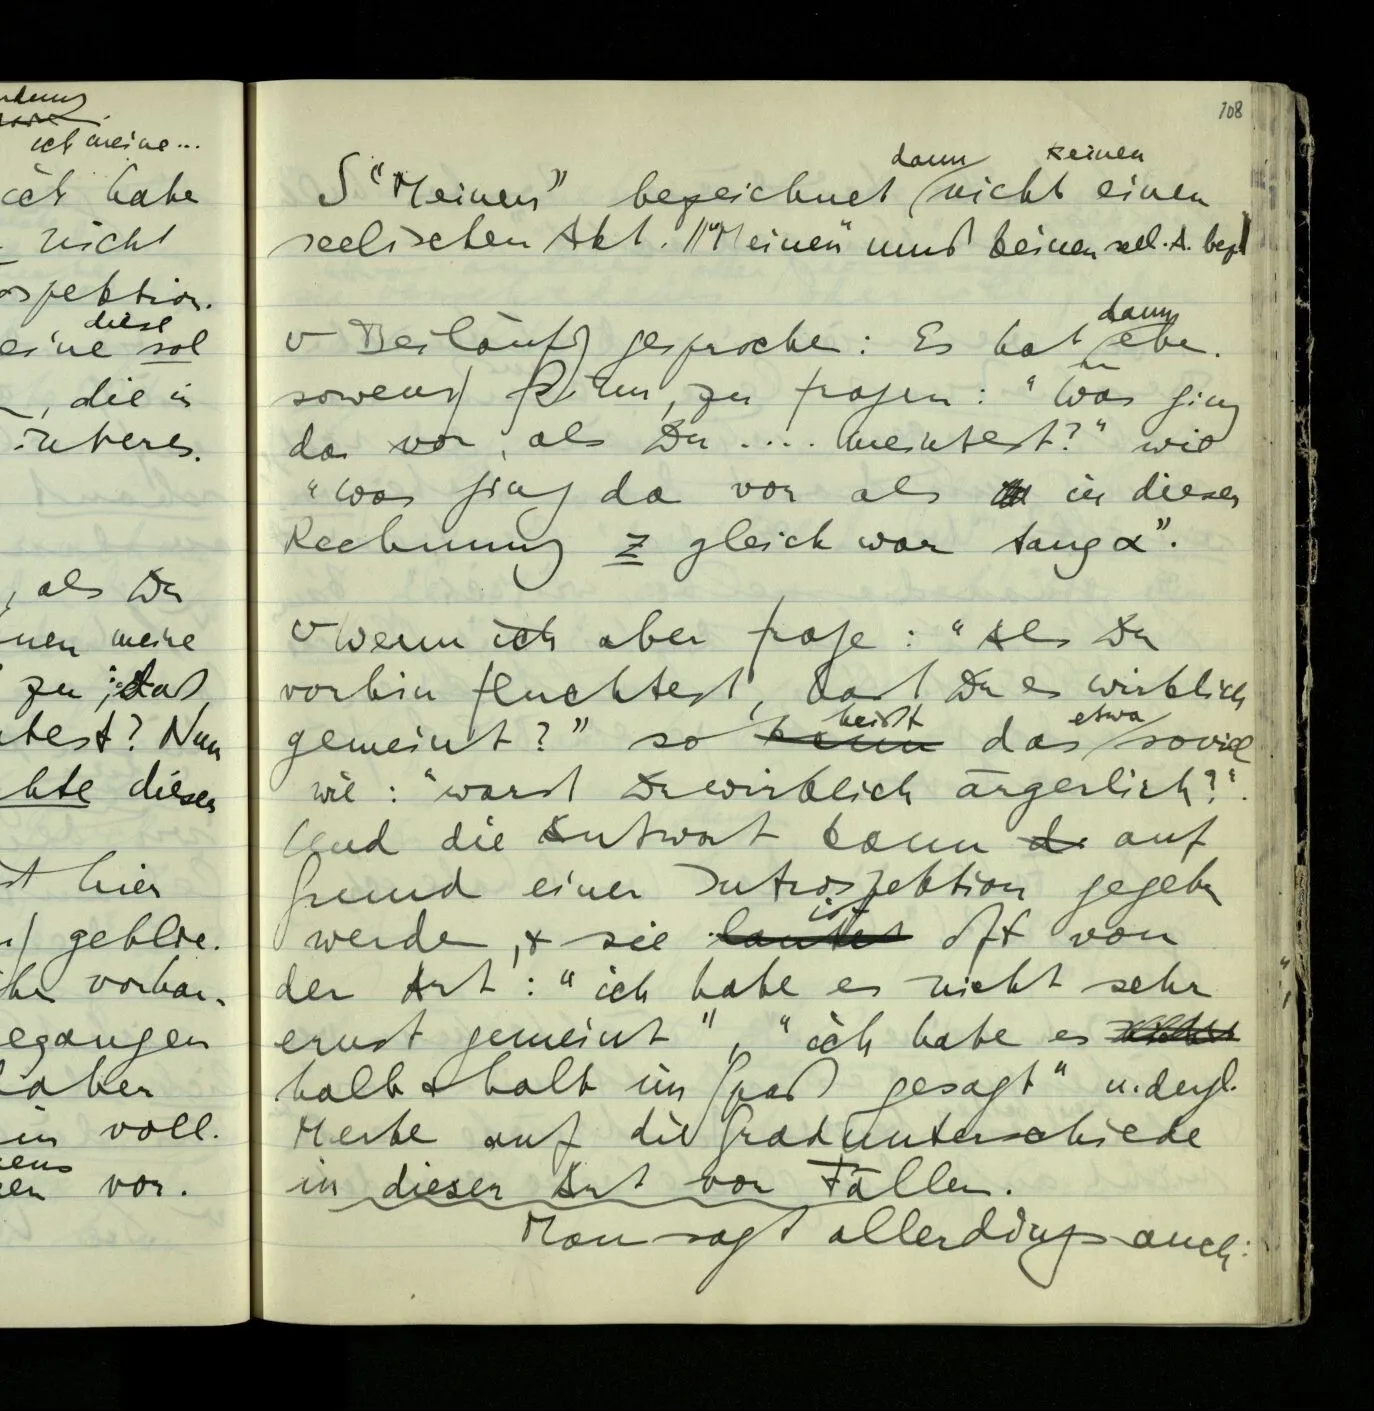 ich meine...
ich habe
nicht
diese
eine sol
, die in
interes.
, als Du
nen meine
zu ; daß
test? Nun
hte diesen
hier
geblie.
vorhan-
egangen
haben
in voll.
vor.
108
dann keinen
S "Meinen" bezeichnet nicht einen
seelischen Akt. // "Meinen" muß keinen seel. A. bez.
dann
Beiläufig gesprochen: Es hat eben.
sowenig Sinn, zu fragen: "Was ging
da vor, als Du .... meintest?" wie
"was ging da vor als in dieser
Rechnung z gleich war tang α".
Wenn ich aber frage: "Als Du
vorhin fluchtest, hast Du es wirklich
heißt etwa
gemeint?" so kann das soviel
wie: "warst Du wirklich ärgerlich?".
Und die Antwort kann d. auf
Grund einer Introspektion gegeben
ist
werden, & sie lautet oft von
der Art: "ich habe es nicht sehr
ernst gemeint", "ich habe es
halb & halb im Spaß gesagt" u. dergl.
Merke auf die Gradunterschiede
in dieser Art von Fällen.
Man sagt allerdings auch: